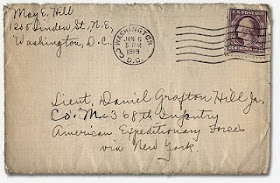 May E. Hill
1200 Linden St., N.E,
Washington, D.C.
WASHINGTON
JUN 6
5 PM
1919
D.C.
U.S. POSTAGE
Lieut. Daniel Grafton Hill Jr.
Co. M. 368th Infantry
American Expeditionary Forces
via New York.